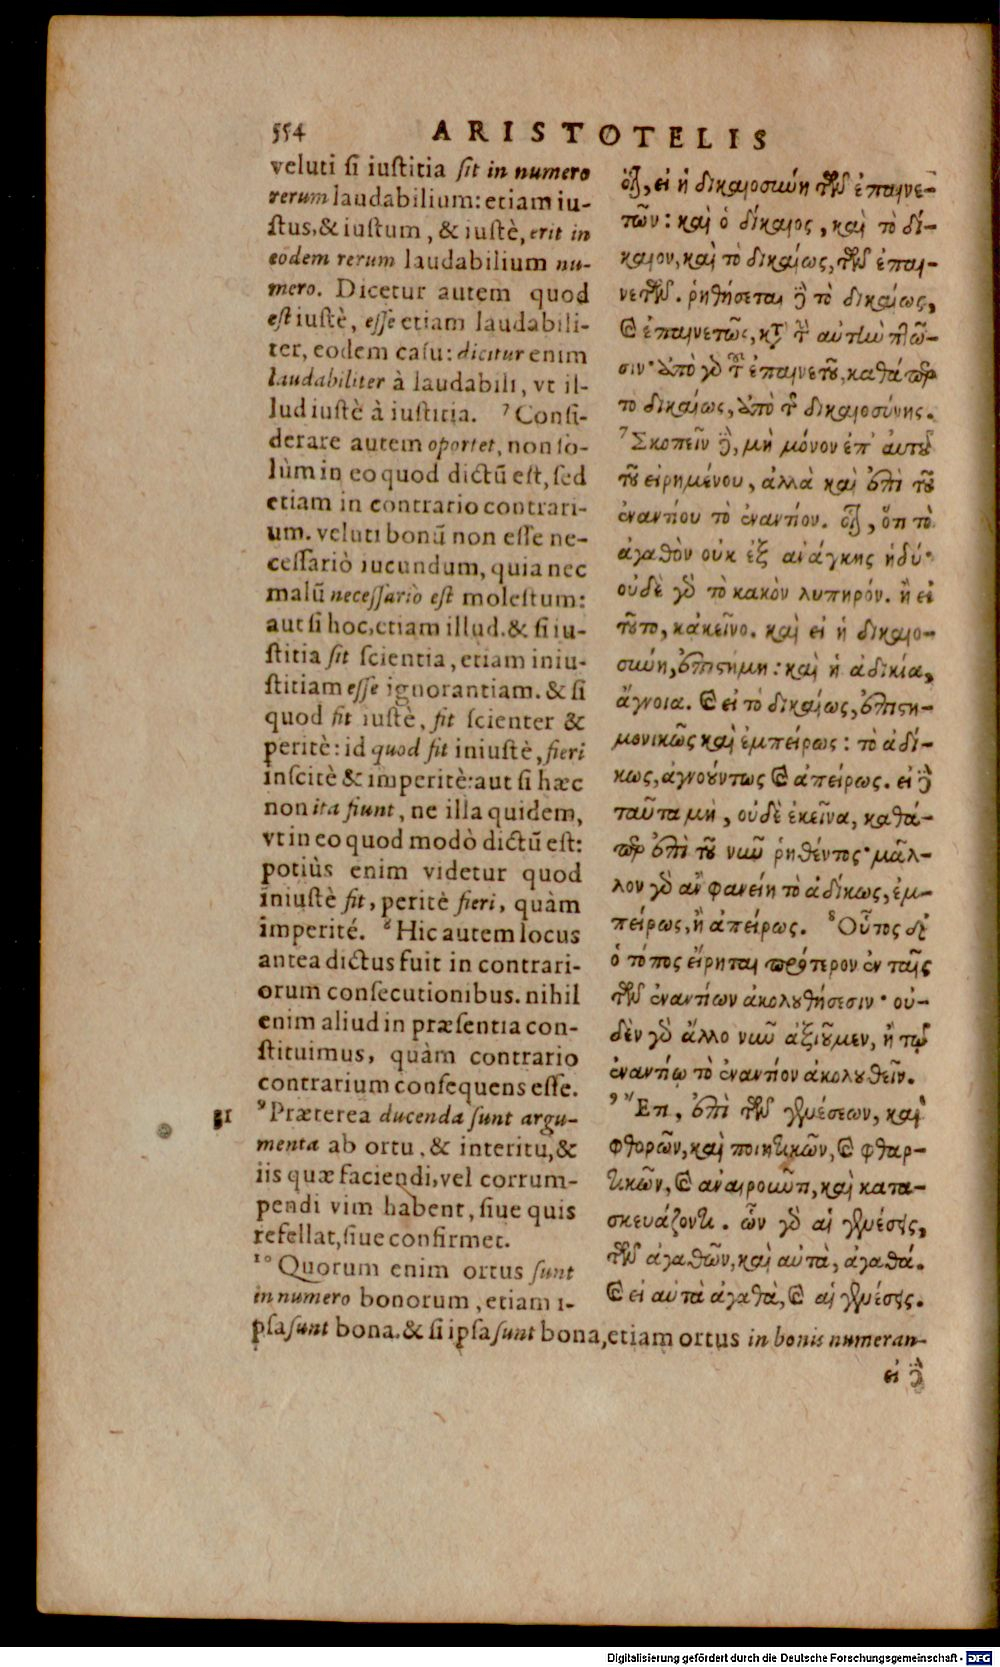 554 ARISTOTELIS
veluti si iustitia sit in numero
rerum laudabilium: etiam iu-
stus, & iustum, & iustè, erit in
eodem rerum laudabilium nu-
mero. Dicetur autem quod
est iustè, esse etiam laudabili-
ter, eodem casu: dicitur enim
laudabiliter à laudabili, vt il-
lud iustè à iustitia. ⁷ Consi-
derare autem oportet, non so-
lùm in eo quod dictũ est, sed
etiam in contrario contrari-
um. veluti bonũ non esse ne-
cessariò iucundum, quia nec
malũ necessariò est molestum:
aut si hoc, etiam illud. & si iu-
stitia sit scientia, etiam iniu-
stitiam esse ignorantiam. & si
quod fit iustè, fit scienter &
peritè: id quod fit iniustè, fieri
inscitè & imperitè: aut si hæc
non ita fiunt, ne illa quidem,
vt in eo quod modò dictũ est:
potiùs enim videtur quod
iniustè fit, peritè fieri, quàm
imperité. ⁸ Hic autem locus
antea dictus fuit in contrari-
orum consecutionibus. nihil
enim aliud in præsentia con-
stituimus, quàm contrario
contrarium consequens esse.
81 ⁹ Præterea ducenda sunt argu-
menta ab ortu, & interitu, &
iis quæ faciendi, vel corrum-
pendi vim habent, siue quis
refellat, siue confirmet.
¹⁰ Quorum enim ortus sunt
in numero bonorum, etiam i-
psa sunt bona. & si ipsa sunt bona, etiam ortus in bonis numeran-
οἷον, εἰ ἡ δικαιοσύνη τῶν ἐπαινε-
τῶν: καὶ ὁ δίκαιος, καὶ τὸ δί-
καιον, καὶ τὸ δικαίως, τῶν ἐπαι-
νετῶν. ῥηθήσεται δὲ τὸ δικαίως,
καὶ ἐπαινετῶς, κατὰ τὴν αὐτὴν πτῶ-
σιν· ἀπὸ γὰρ τοῦ ἐπαινετοῦ, καθάπερ
τὸ δικαίως, ἀπὸ τῆς δικαιοσύνης.
⁷ Σκοπεῖν δὲ, μὴ μόνον ἐπ' αὐτοῦ
τοῦ εἰρημένου, ἀλλὰ καὶ ἐπὶ τοῦ
ἐναντίου τὸ ἐναντίον. οἷον, ὅτι τὸ
ἀγαθὸν οὐκ ἐξ ἀνάγκης ἡδύ·
οὐδὲ γὰρ τὸ κακὸν λυπηρόν. ἢ εἰ
τοῦτο, κἀκεῖνο. καὶ εἰ ἡ δικαιο-
σύνη, ἐπιστήμη: καὶ ἡ ἀδικία,
ἄγνοια. καὶ εἰ τὸ δικαίως, ἐπιστη-
μονικῶς καὶ ἐμπείρως: τὸ ἀδί-
κως, ἀγνοούντως καὶ ἀπείρως. εἰ δὲ
ταῦτα μὴ, οὐδὲ ἐκεῖνα, καθά-
περ ἐπὶ τοῦ νῦν ῥηθέντος· μᾶλ-
λον γὰρ ἂν φανείη τὸ ἀδίκως, ἐμ-
πείρως, ἢ ἀπείρως. ⁸ Οὗτος δὲ
ὁ τόπος εἴρηται πρότερον ἐν ταῖς
τῶν ἐναντίων ἀκολουθήσεσιν· οὐ-
δὲν γὰρ ἄλλο νῦν ἀξιοῦμεν, ἢ τῷ
ἐναντίῳ τὸ ἐναντίον ἀκολουθεῖν.
⁹ Ἔτι, ἐπὶ τῶν γενέσεων, καὶ
φθορῶν, καὶ ποιητικῶν, καὶ φθαρ-
τικῶν, καὶ ἀναιροῦντι, καὶ κατα-
σκευάζοντι. ὧν γὰρ αἱ γενέσεις,
τῶν ἀγαθῶν, καὶ αὐτὰ, ἀγαθά.
καὶ εἰ αὐτὰ ἀγαθὰ, καὶ αἱ γενέσεις.
εἰ δὲ
Digitalisierung gefördert durch die Deutsche Forschungsgemeinschaft - DFG